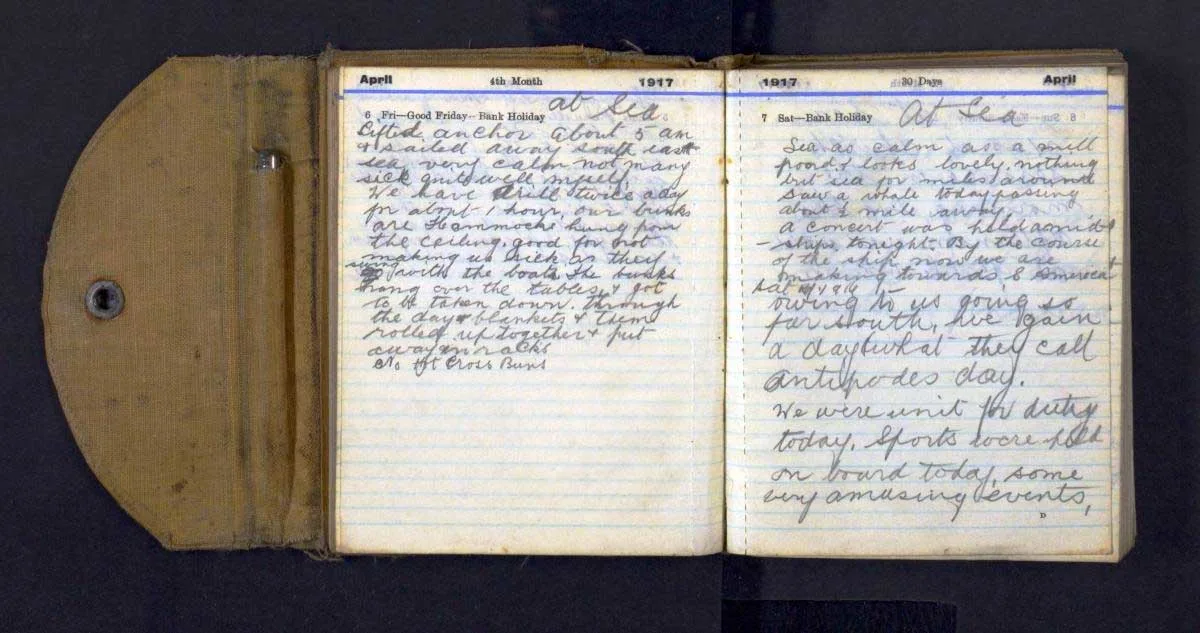 April 4th Month 1917
at Sea
6 Fri—Good Friday—Bank Holiday
Lifted anchor about 5 am
& sailed away south east
sea very calm not many
sick quite well myself.
We have drill twice a day
for about 1 hour, our bunks
are Hammocks hung from
the ceiling, good for not
making us sick as they
swing
with the boat. The bunks
hang over the tables, & got
to be taken down through
the day & blankets & them
rolled up together & put
away in racks
No Hot Cross Buns
1917 30 Days April
7 Sat—Bank Holiday
At Sea
8
Sea as calm as a mill
pond & looks lovely, nothing
but sea for miles around
Saw a whale today passing
about ½ mile away
a concert was held amid
-ships tonight. By the course
of the ship now we are
making towards S America
Sat
owing to us going so
far south, we gain
a day & what they call
antipodes day.
We were unit for duty
today. Sports were held
on board today, some
very amusing events,
D